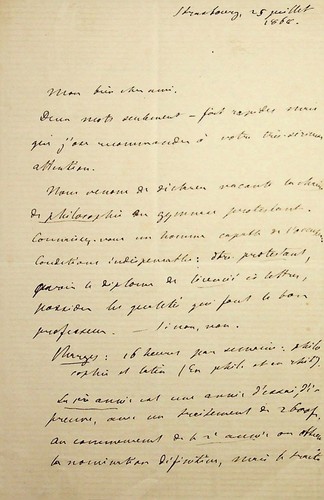 Strasbourg, 25 juillet
1868.
Mon bien cher ami.
Deux mots seulement – fort rapides mais
que j'ose recommander à votre très-sérieuse
attention.
Nous venons de déclarer vacante la chaire
de philosophie du gymnase protestant.
Connaissez-vous un homme capable de l'occuper
Conditions indispensables : être protestant,
avoir le diplôme de licencié ès lettres,
posséder les qualités qui font le bon
professeur. – Sinon, non.
Charges : 16 heures par semaine : philo
sophie et latin (En philo. et en rhét.).
La 1re année est une année d'essai, d'é
preuve, avec un traitement de 2600f.
Au commencement de la 2e année on obtient
la nomination définitive, mais le traite